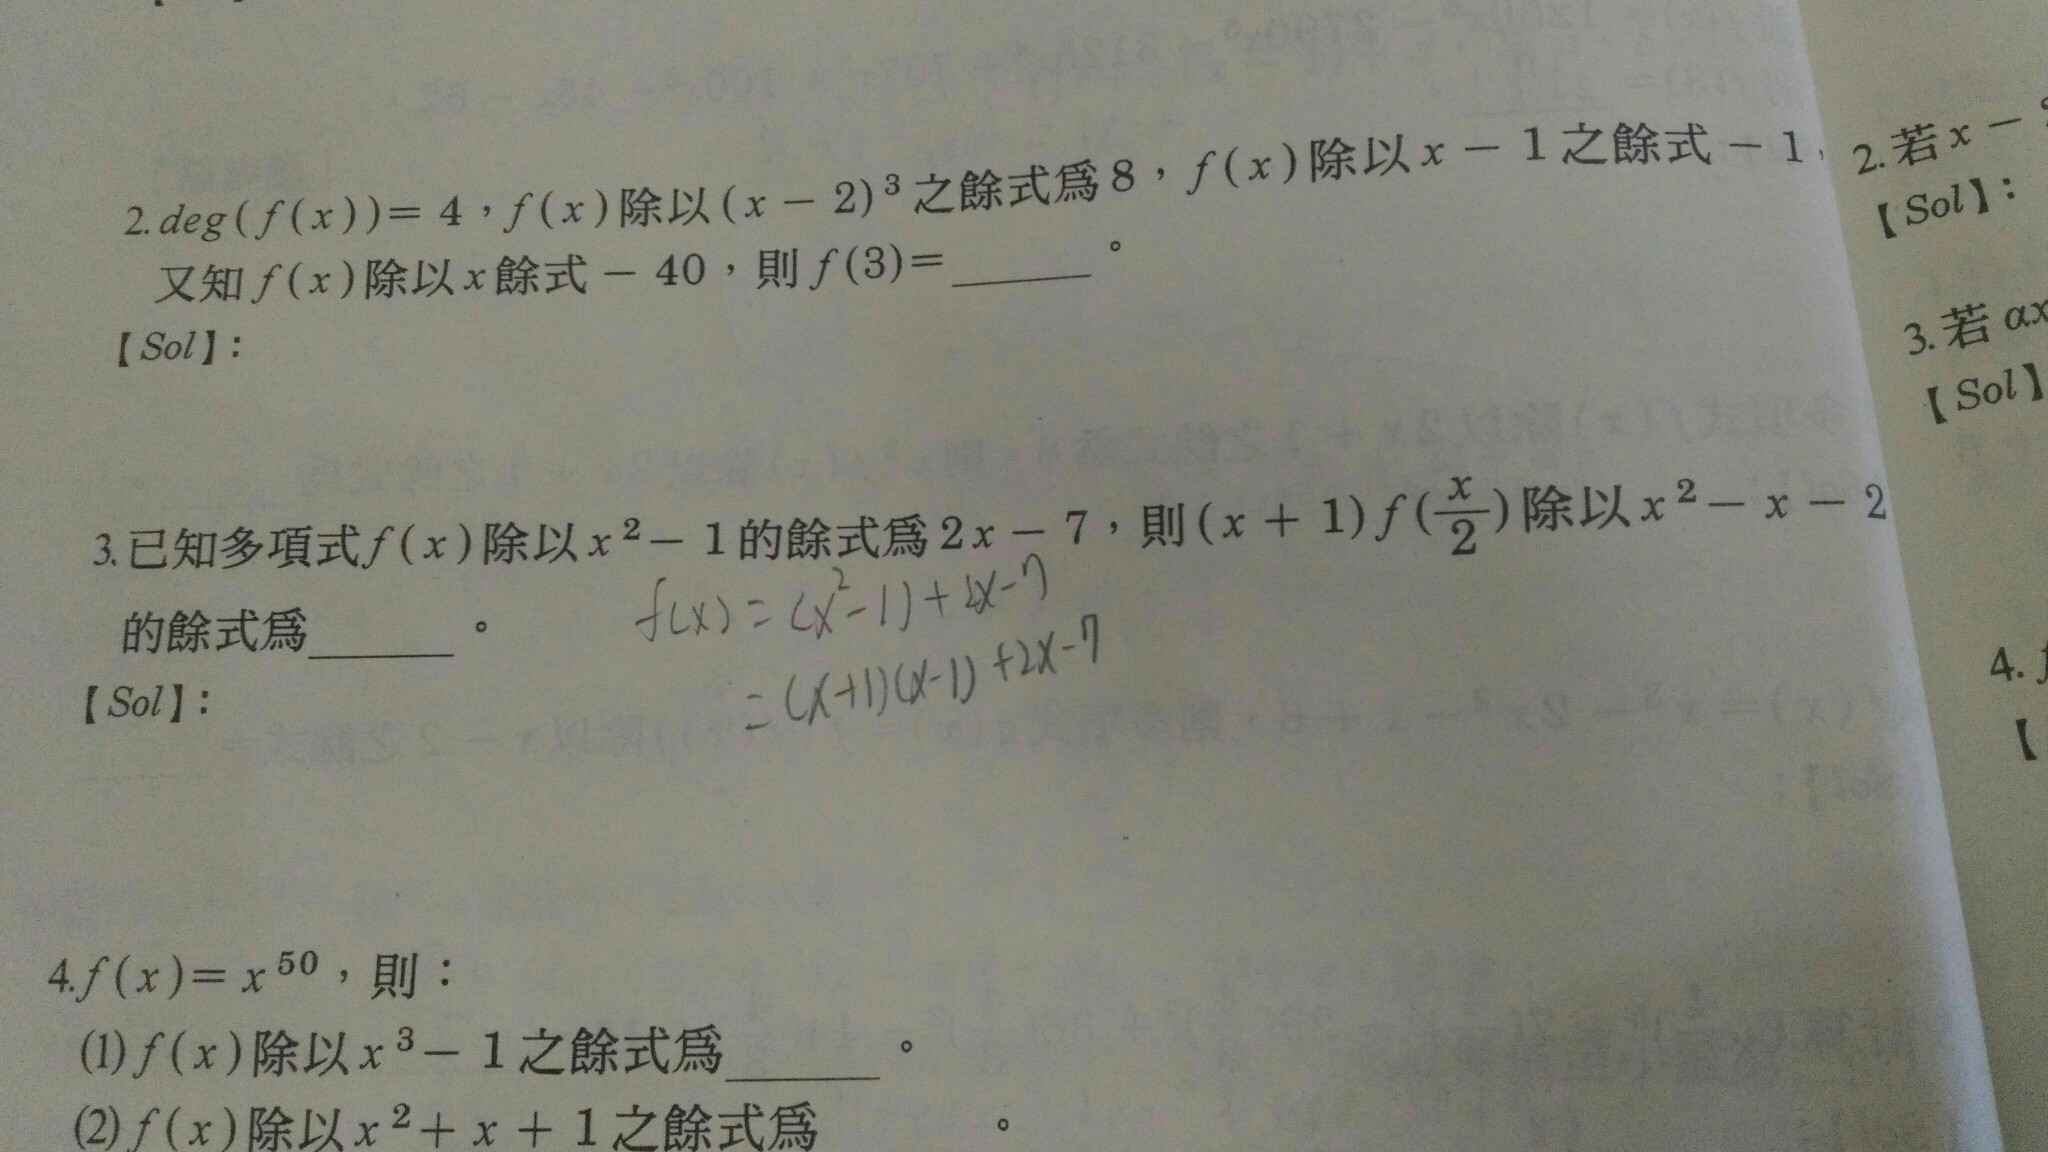 2. deg(f(x))= 4，f(x)除以(x − 2)³之餘式爲8，f(x)除以x − 1之餘式 − 1，
又知f(x)除以x餘式 − 40，則f(3)=______。
【Sol】：
3.已知多項式f(x)除以x²− 1的餘式爲2x − 7，則(x + 1)f(x/2)除以x²− x − 2
的餘式爲______。
f(x) = (x²-1)+2x-7
= (x+1)(x-1)+2x-7
【Sol】：
4.f(x)= x⁵⁰，則：
(1)f(x)除以x³− 1之餘式爲______。
(2)f(x)除以x²+ x + 1之餘式爲 。
2.若x −
【Sol】：
3.若ax
【Sol】
4.
【